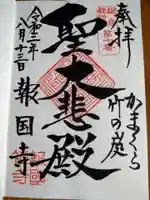 奉拝
かまくら
竹の庭
聖大悲殿
令和二年
八月十三日
報国寺